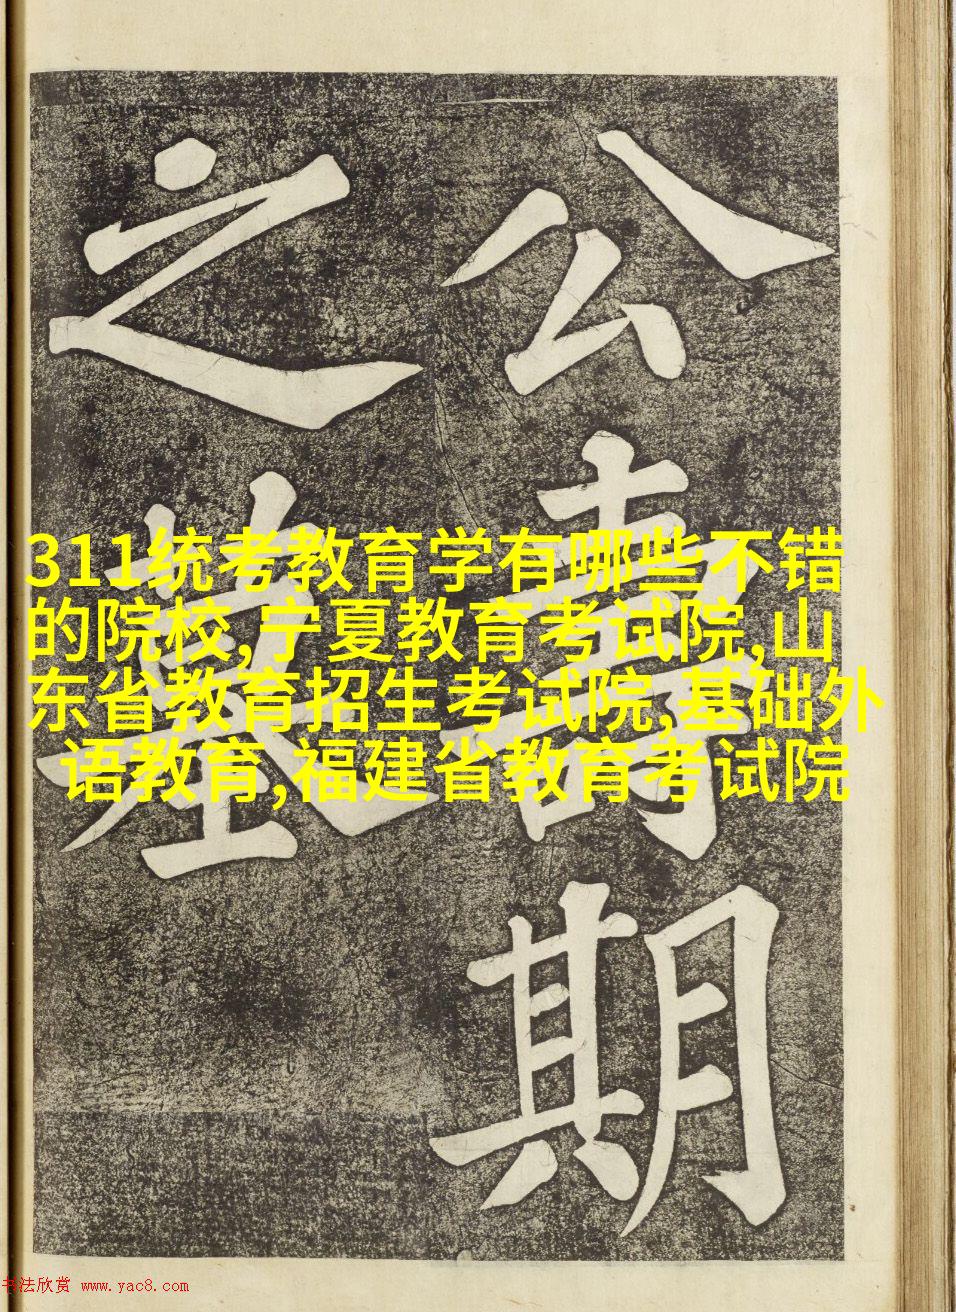 公壽期
之墓
311统考教育学有哪些不错
的院校,宁夏教育考试院,山
东省教育招生考试院,基础外
语教育,福建省教育考试院
书法欣赏 www.yac8.com